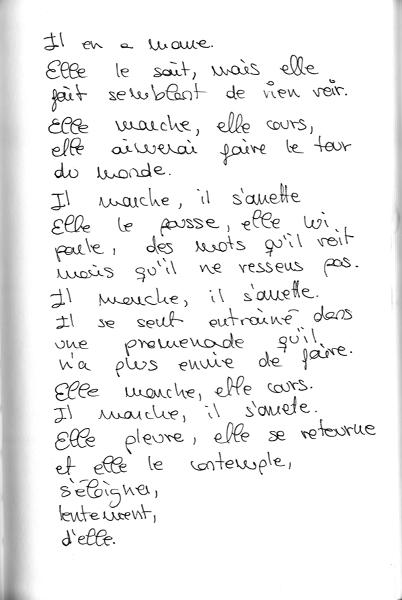 Il en a marre.
Elle le sait, mais elle
fait semblant de rien voir.
Elle marche, elle cours,
elle aimerai faire le tour
du monde.
Il marche, il s'arrette
Elle le pousse, elle lui
parle, des mots qu'il voit
mais qu'il ne ressens pas.
Il marche, il s'arrette.
Il se sent entrainé dans
une promenade qu'il
n'a plus envie de faire.
Elle marche, elle cours.
Il marche, il s'arrete.
Elle pleure, elle se retourne
et elle le contemple,
s'éloigner,
lentement,
d'elle.